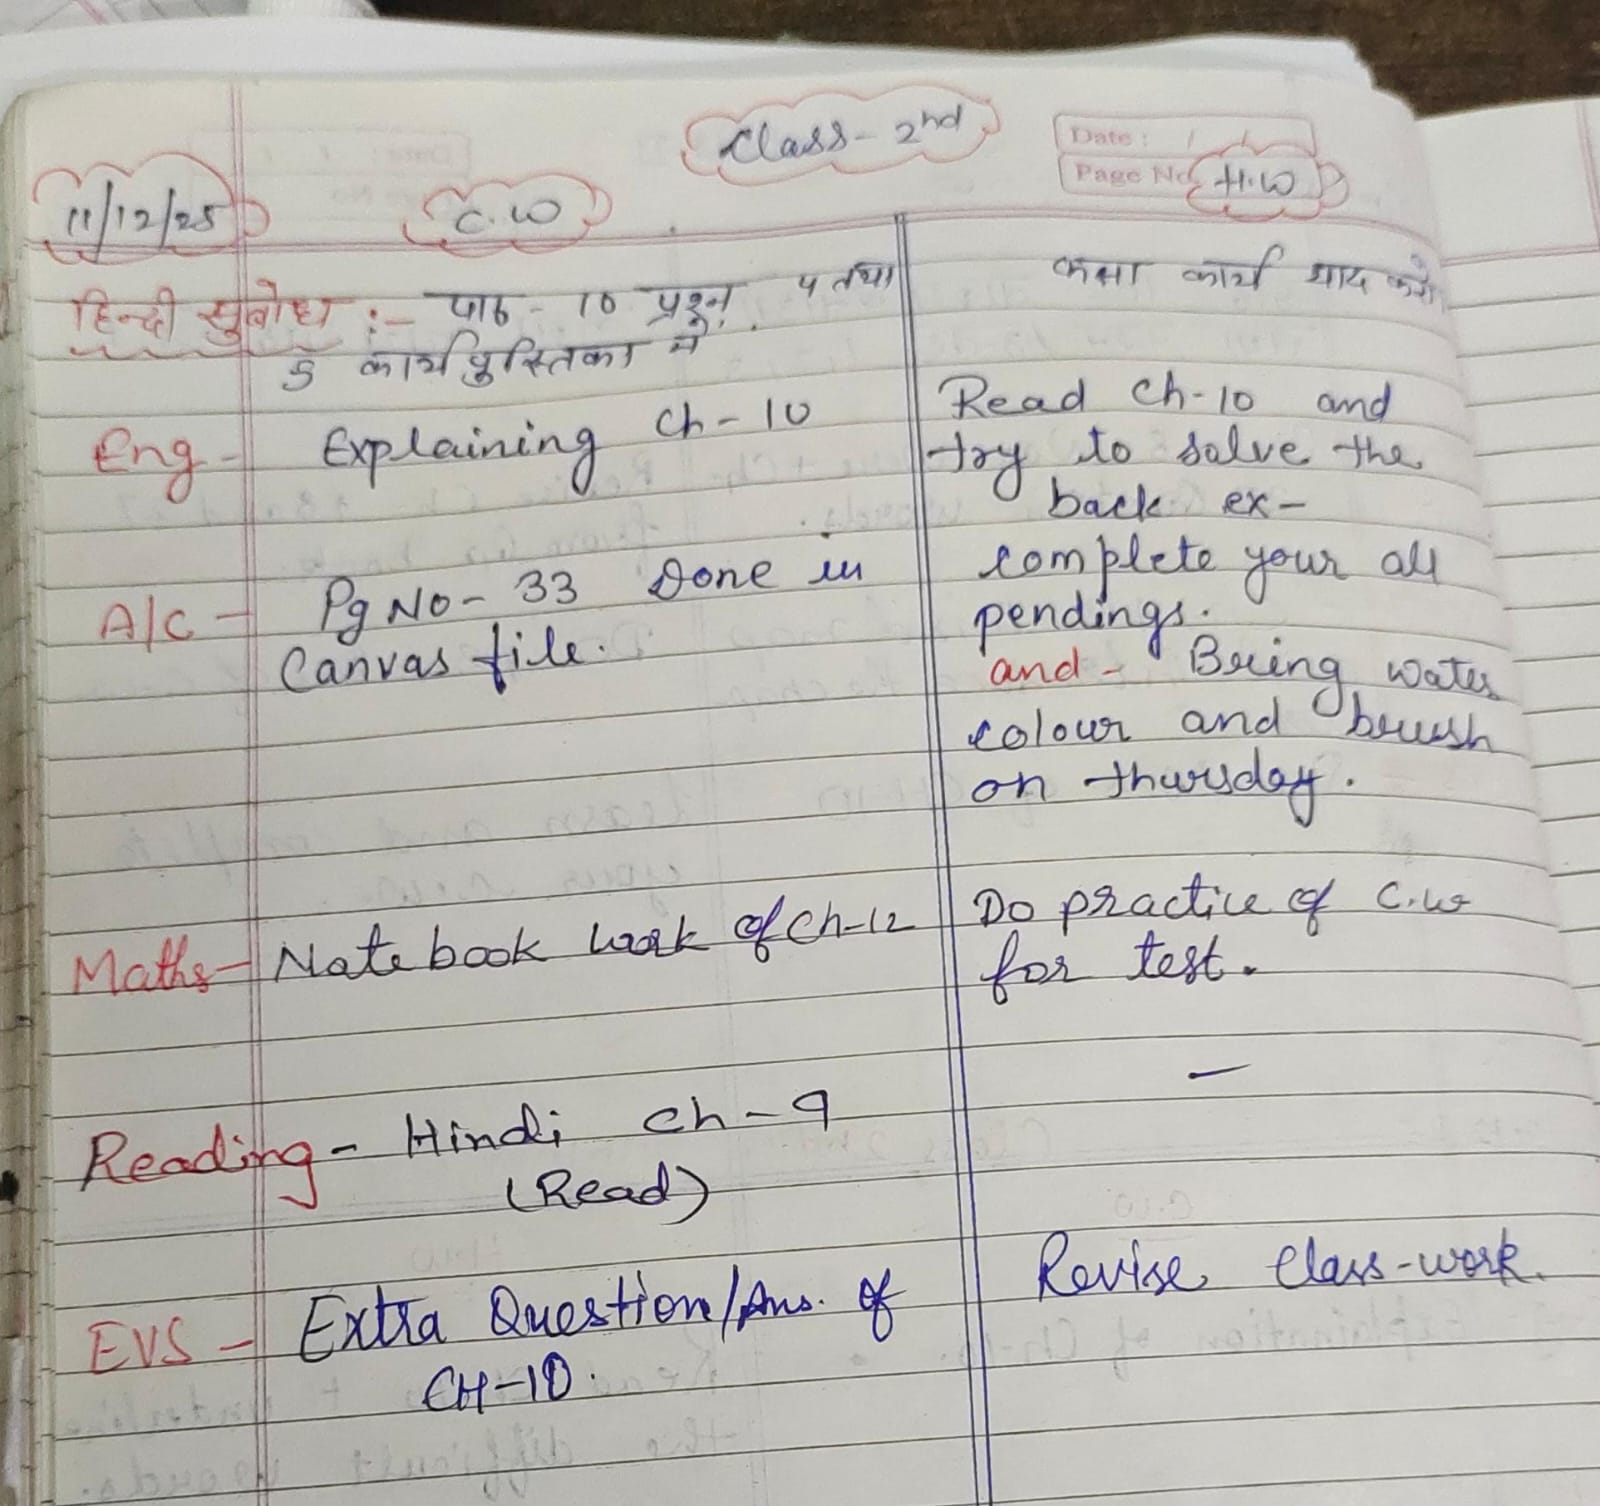 Class- 2nd
Date: / /
Page No. H.W
11/12/25 C.W
हिन्दी सुबोध :- पाठ - 10 प्रश्न 4 तथा
कक्षा कार्य याद करो
5 कार्यपुस्तिका में
Eng - Explaining Ch-10
Read Ch-10 and
try to solve the
back ex-
A/C - Pg No- 33 Done in
Canvas file.
complete your all
pendings.
and - Bring water
colour and brush
on thursday.
Maths- Note book work of Ch-12
Do practice of C.W
for test.
Reading - Hindi Ch-9
(Read)
-
EVS - Extra Question/Ans. of
CH-10.
Revise Class-work.